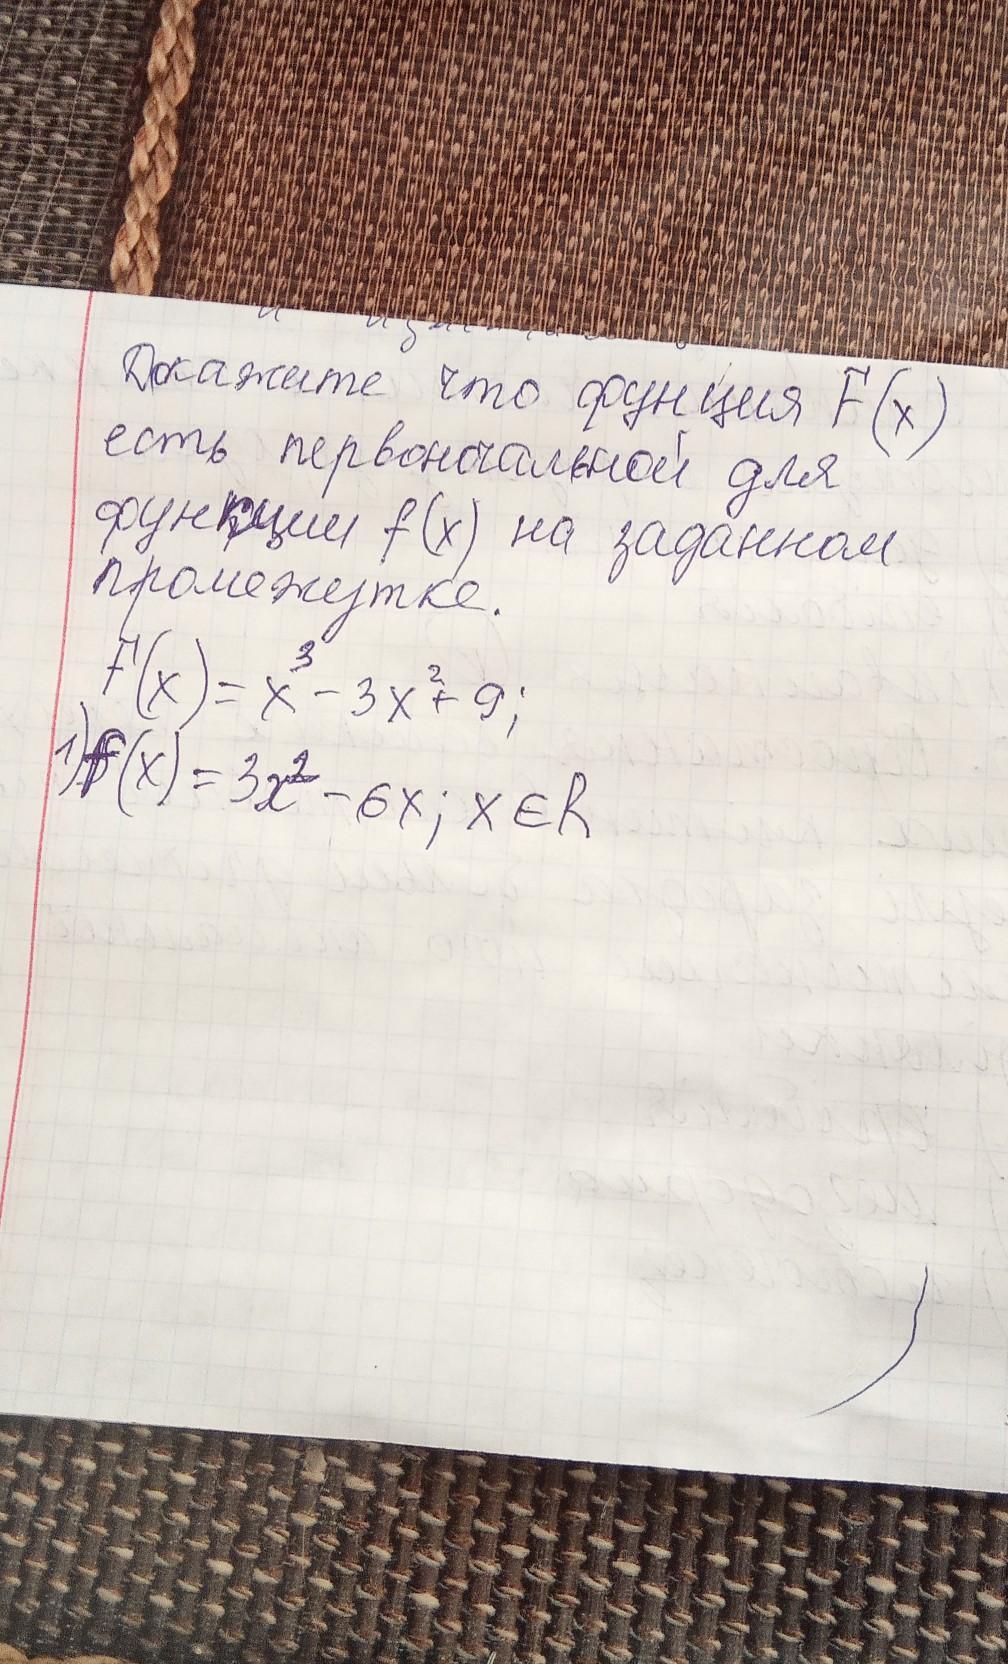 Докажите что фунция F(x)
есть первоночальной для
функции f(x) на заданном
промежутке.
F(x) = x³ - 3x² + 9;
1) f(x) = 3x² - 6x; x ∈ R